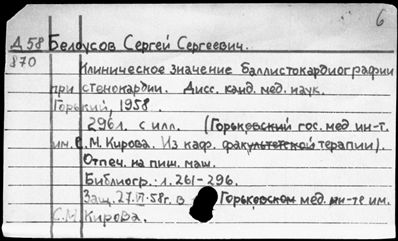 6
Д58 Белоусов Сергей Сергеевич.
870 Клиническое значение баллистокардиографии
при стенокардии. Дисс. канд. мед. наук.
Горький, 1958.
296л. с илл. (Горьковский гос. мед ин-т.
им. С.М. Кирова. Из каф. факультетской терапии).
Отпеч. на пиш. маш.
Библиогр.: л. 261-296.
Защ. 27.VI-58г. в Горьковском мед. ин-те им.
С.М. Кирова.